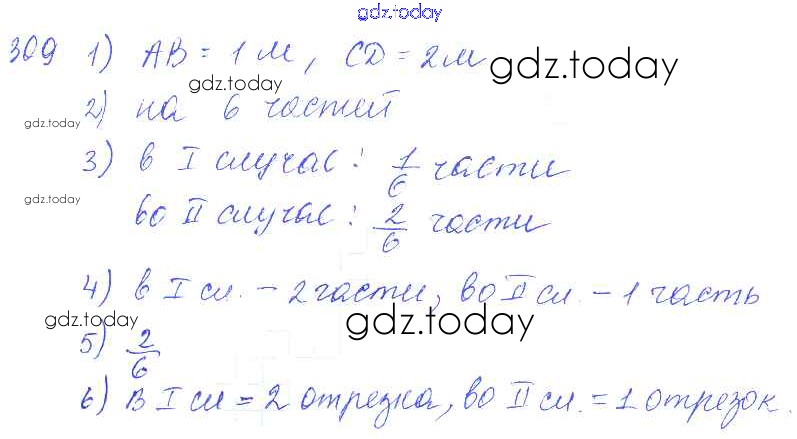 gdz.today
309 1) AB = 1 м, CD = 2 м gdz.today
gdz.today
gdz.today 2) на 6 частей
3) в I случае: 1/6 части
gdz.today
во II случае: 2/6 части
4) в I сл. – 2 части, во II сл. – 1 часть
gdz.today gdz.today
5) 2/6
6) в I сл = 2 отрезка, во II сл. = 1 отрезок.